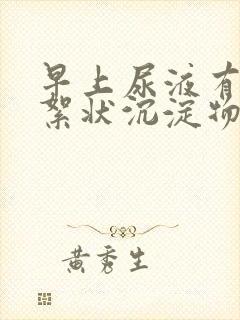 早上尿液有
絮状沉淀物
黄秀生